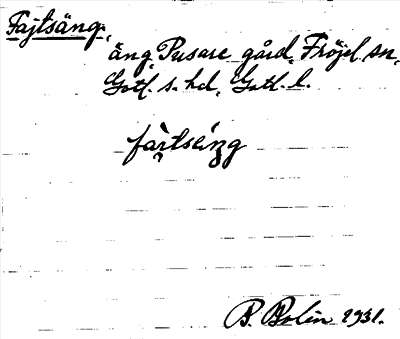 Fajtsäng,
äng, Pusare gård, Fröjel sn,
Gotl. s. hd, Gotl. l.
B. Bolin 1931.